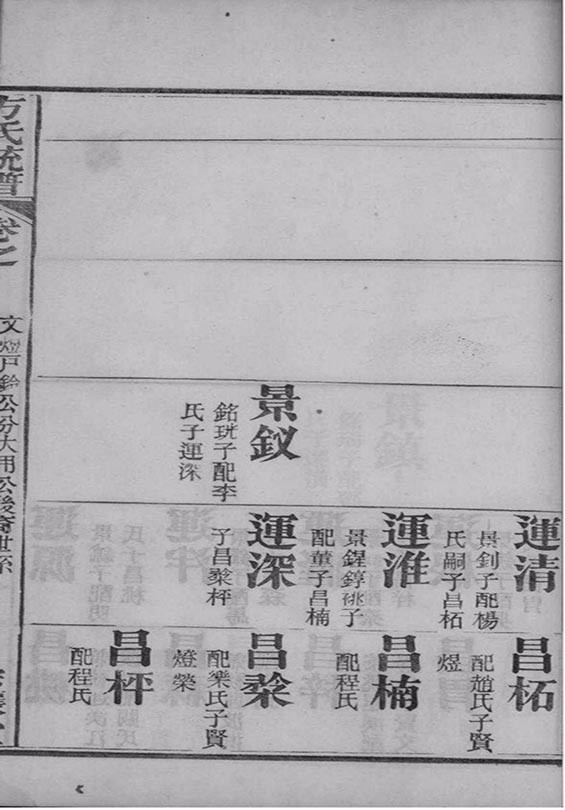 景釵
銘珖子配李
氏子運深
運清
景釗子配楊
氏嗣子昌柘
運淮
景鋥錞祧子
配董子昌楠
運深
子昌棨枰
昌柘
配趙氏子賢
煜
昌楠
配程氏
昌棨
配樂氏子賢
燈榮
昌枰
配程氏
方氏統譜
卷之
公份大用公後裔世系